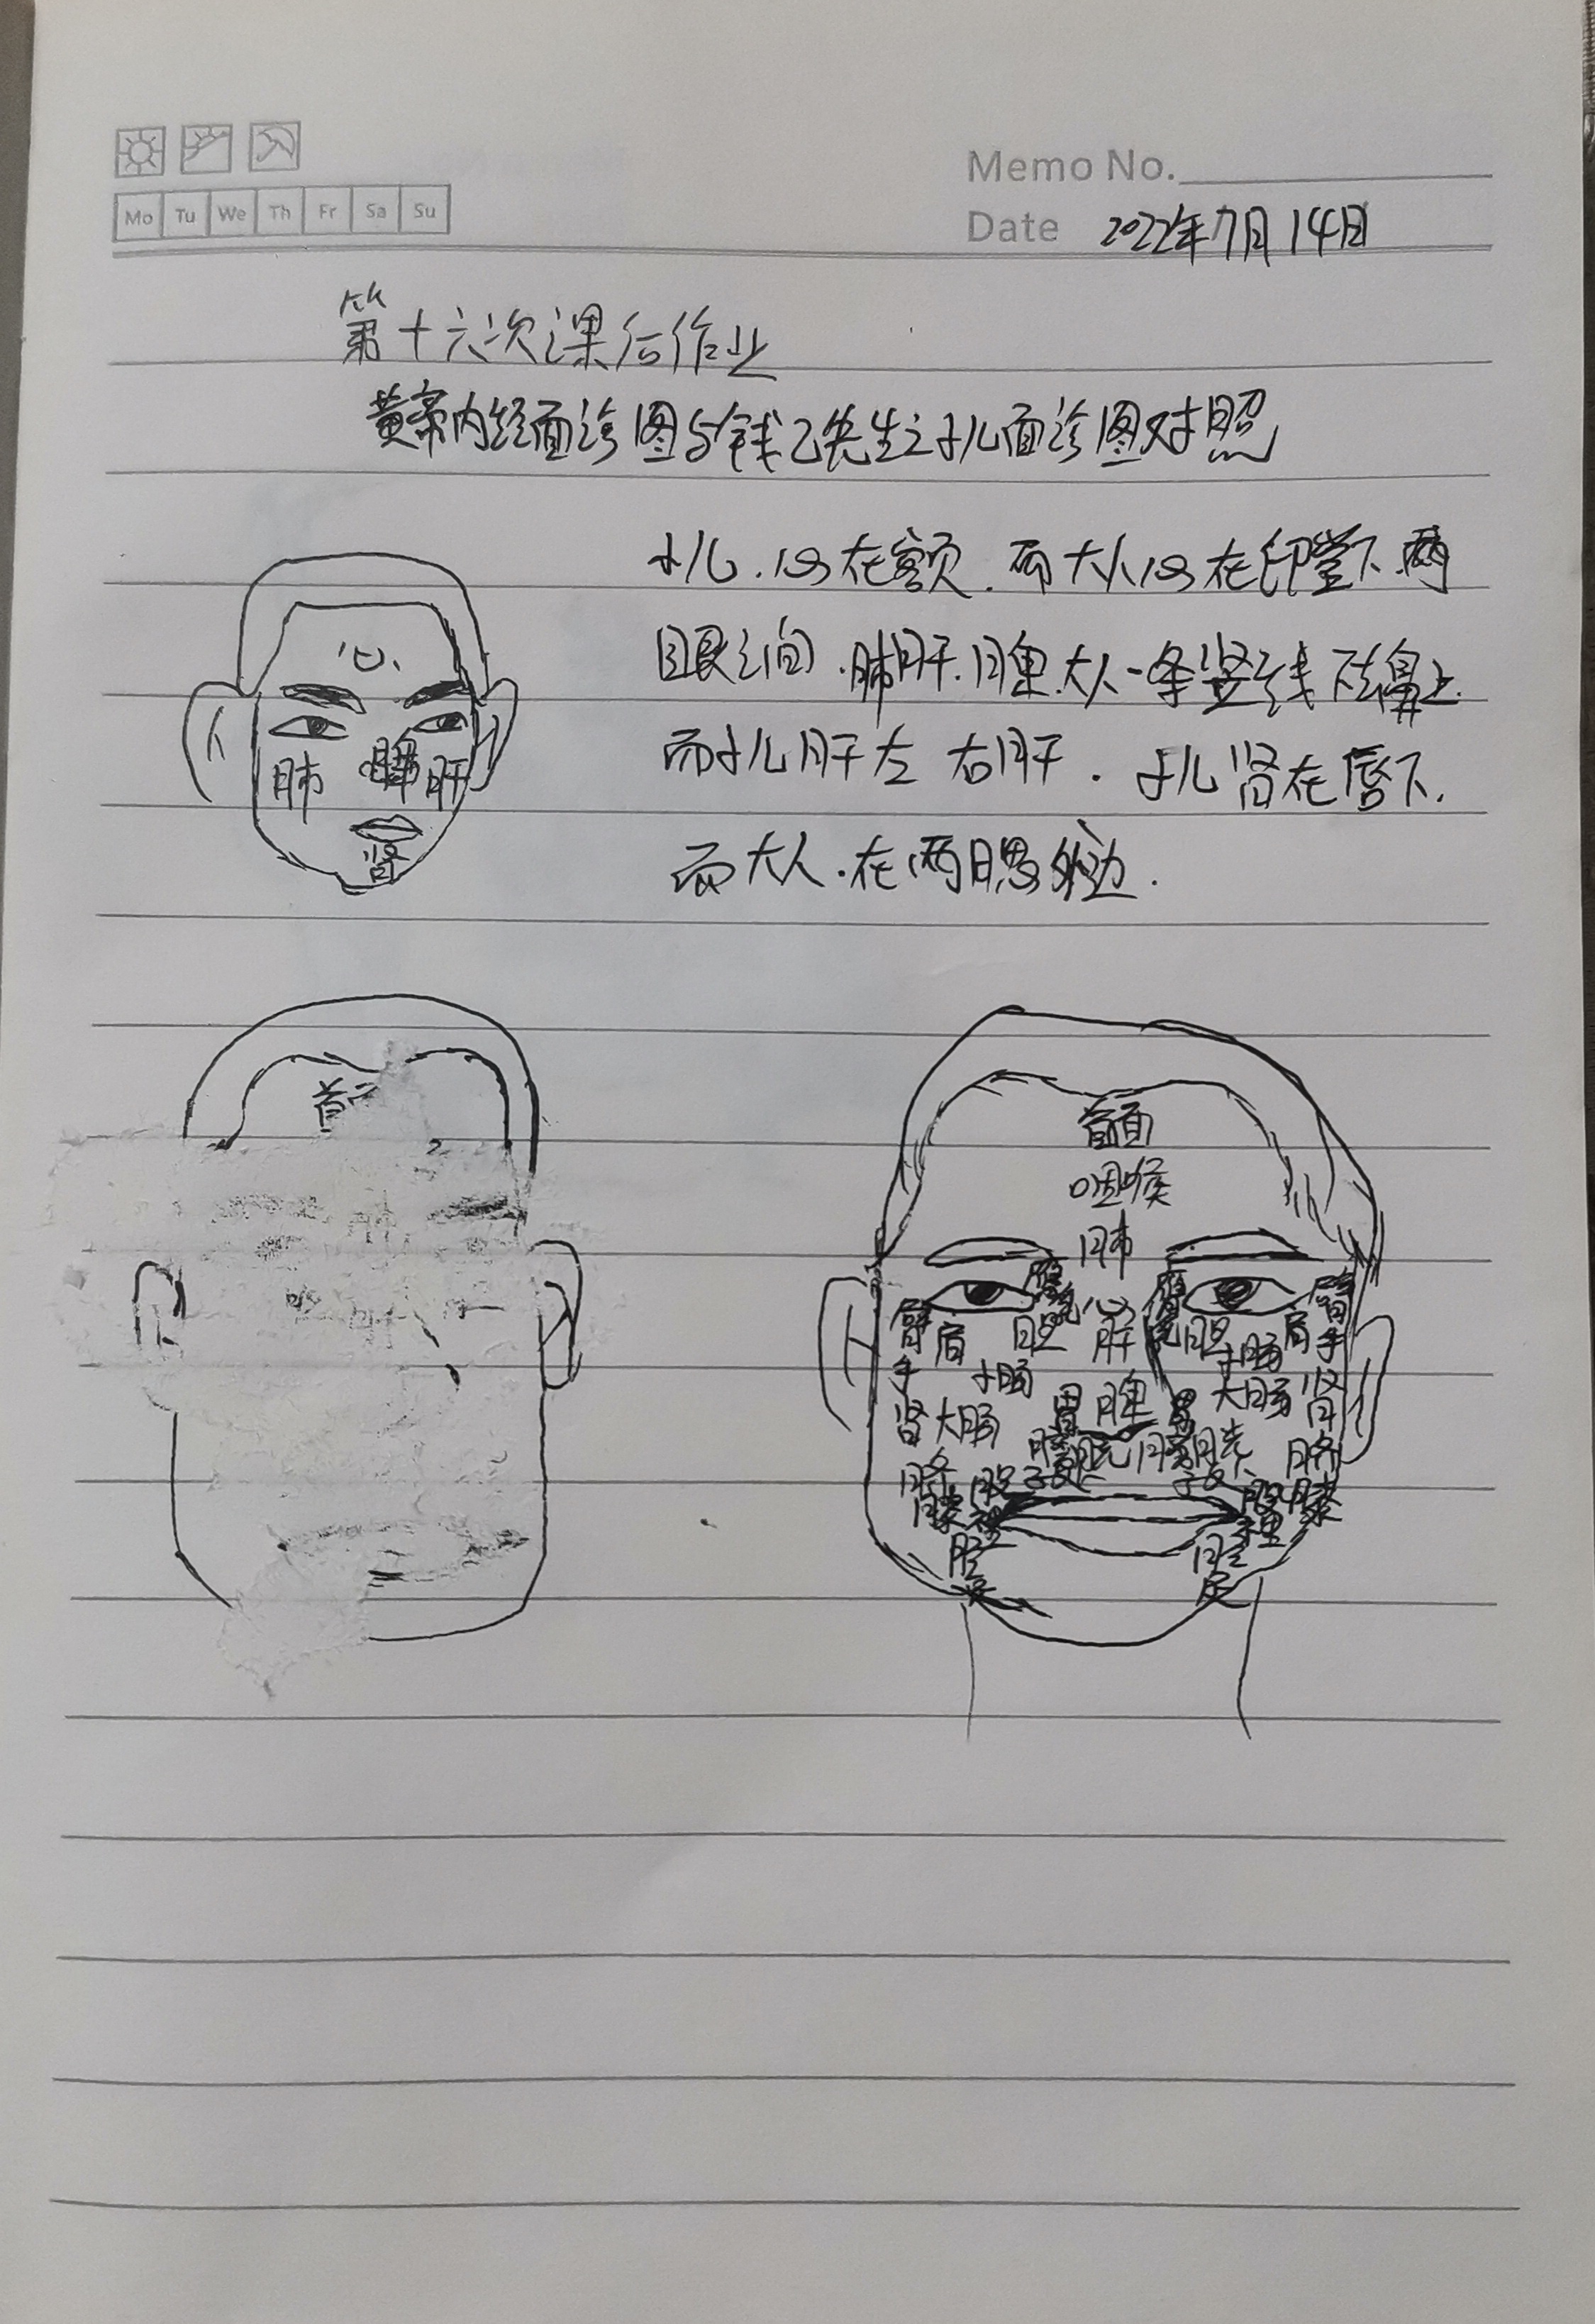 Mo Tu We Th Fr Sa Su
Memo No.
Date 2022年7月14日
第十六次课后作业
黄帝内经面诊图与钱乙先生之小儿面诊图对照
小儿.心在额.而大人心在印堂下.两
目眼之间.肺肝.脾.大人一条竖线下在鼻上.
而小儿肝左 右肝.小儿肾在唇下.
而大人.在两腮外边.
心
肺 脾 肝
肾
首
首面
咽喉
肺
心
臂 肩 胆 肝 胆 小肠 肩 臂
手 小肠 手
肾 大肠 胃 脾 胃 大肠 肾
膀胱 膀胱
脐 股 子处 子处 脐
膝 股 膝
胫 胫
足 足